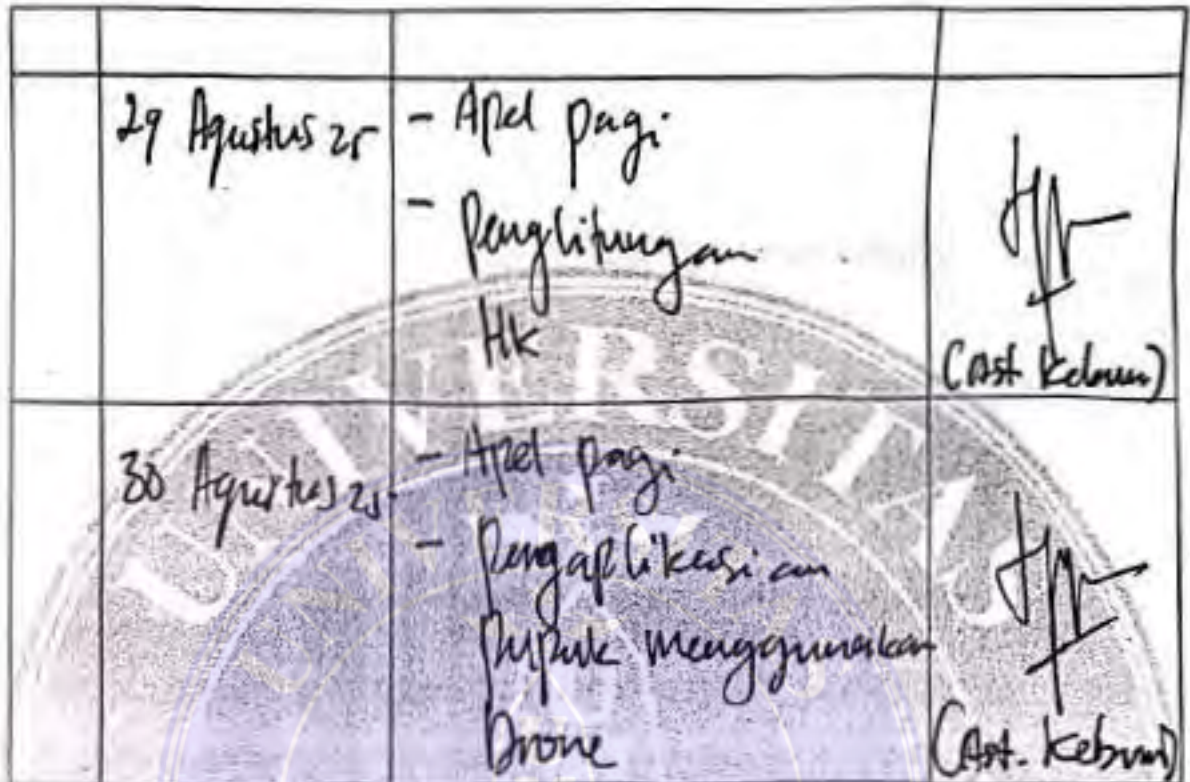 29 Agustus 25
- Apel pagi
- Penghitungan
HK
(Ast. Kebun)
30 Agustus 25
- Apel pagi
- Pengaplikasian
Pupuk menggunakan
Drone
(Ast. Kebun)
UNIVERSITAS